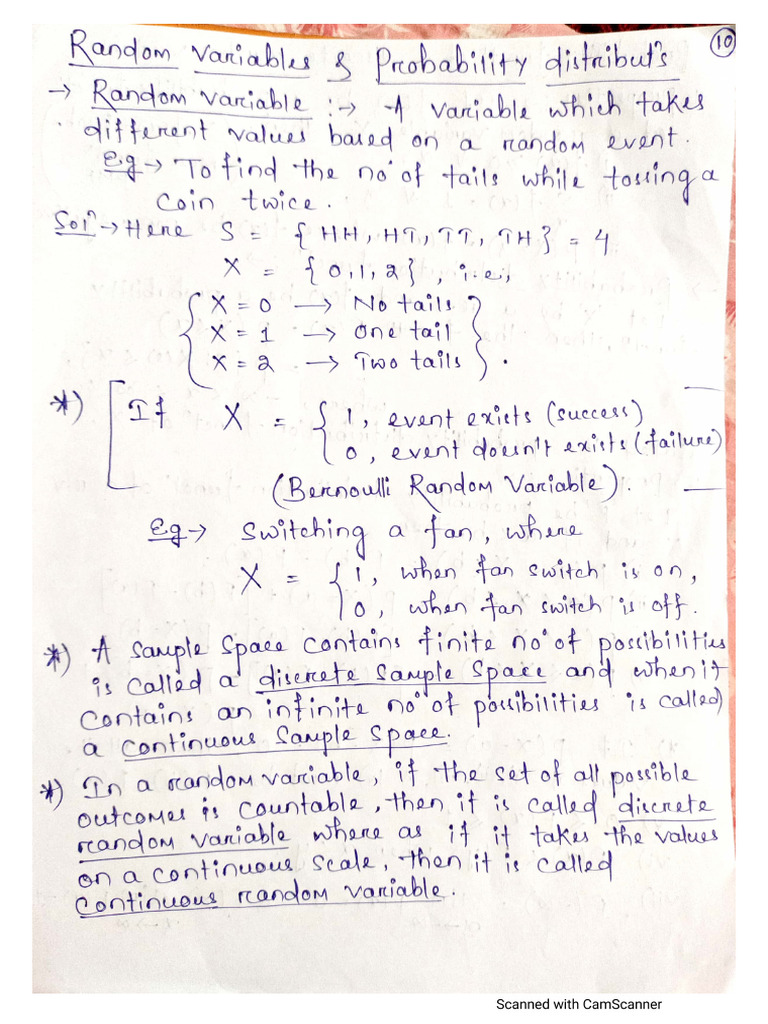 Random Variables & Probability distribut^n s
10
→ Random variable :→ A variable which takes
different values based on a random event.
Eg → To find the no° of tails while tossing a
coin twice.
Sol^n → Here S = { HH, HT, TT, TH} = 4
X = {0,1,2}, i.e.,
{ X = 0 → No tails
X = 1 → One tail
X = 2 → Two tails }.
*) [ If X = { 1, event exists (success)
0, event doesn't exists (failure)
(Bernoulli Random Variable).
Eg → Switching a fan, where
X = { 1, when fan switch is on,
0, when fan switch is off.
*) A sample space contains finite no° of possibilities
is called a discrete sample space and when it
contains an infinite no° of possibilities is called)
a continuous sample space.
*) In a random variable, if the set of all possible
outcomes is countable, then it is called discrete
random variable where as if it takes the values
on a continuous scale, then it is called
continuous random variable.
Scanned with CamScanner